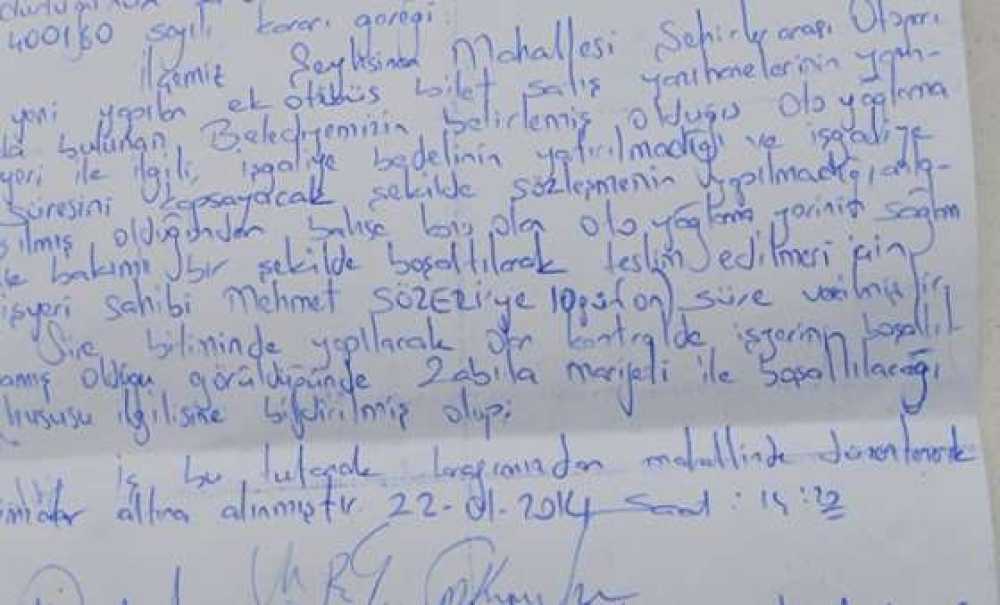 400160 sayılı kararı gereği.
İlçemiz Şeyhsinan Mahallesi Şehirler arası Otogarı
yeni yapılan ek otobüs bilet satış yazıhanelerinin yanın-
da bulunan Belediyemizin belirlemiş olduğu oto yağlama
yeri ile ilgili, işgaliye bedelinin yatırılmadığı ve işgaliye
süresini kapsayacak şekilde sözleşmenin yapılmadığı anla-
şılmış olduğundan bahse konu olan oto yağlama yerinin sağlam
ve bakımlı bir şekilde boşaltılarak teslim edilmesi için
işyeri sahibi Mehmet SÖZERİ'ye 10 gün (on) süre verilmiştir.
Süre bitiminde yapılacak olan kontrolde işyerinin boşaltıl
amış olduğu görüldüğünde Zabıta marifeti ile boşaltılacağı
hususu ilgilisine bildirilmiş olup;
iş bu tutanak tarafımızdan mahallinde düzenlenerek
imzalar altına alınmıştır 22-01-2014 Saat :